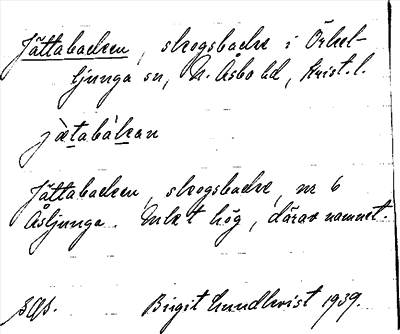 Jättabacken, skogsbacke i Örkel-
ljunga sn, N. Åsbo hd, Krist. l.
jætabàkan
Jättabacken, skogsbacke, nr 6
Åsljunga. Mkt hög, därav namnet.
Birgit Lundkvist 1939.